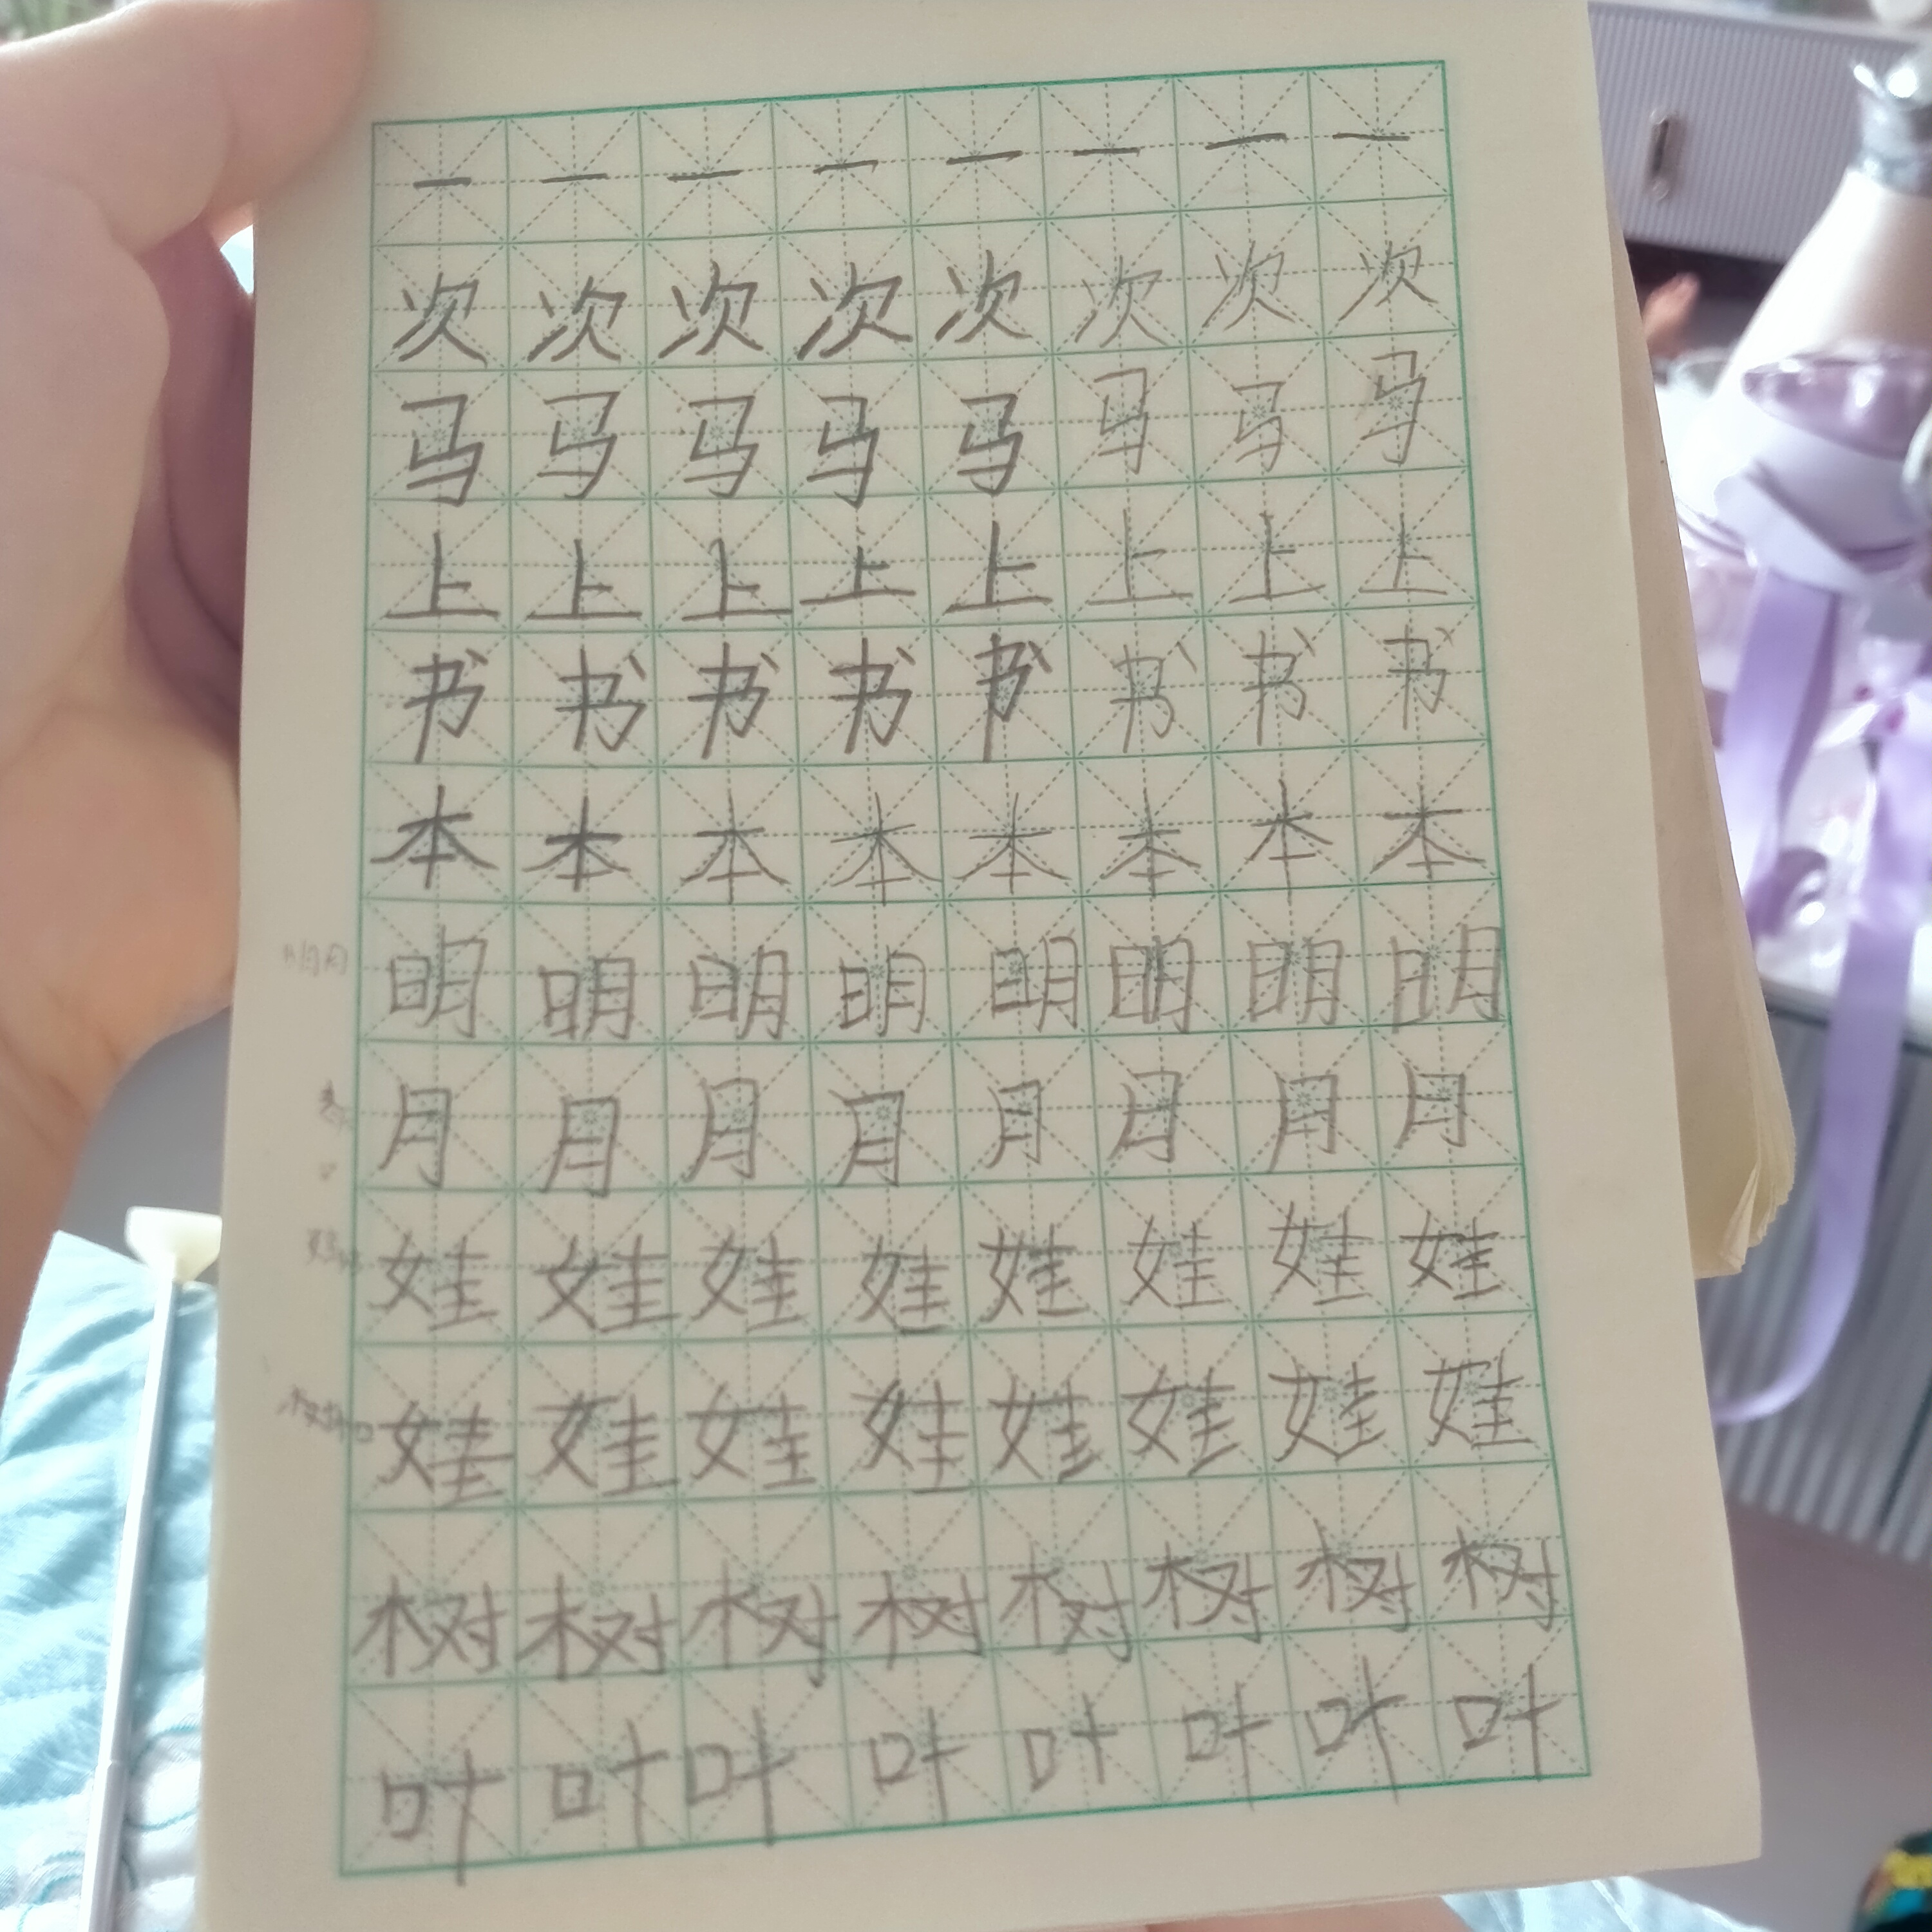 一 一 一 一 一 一 一 一
次 次 次 次 次 次 次 次
马 马 马 马 马 马 马 马
上 上 上 上 上 上 上 上
书 书 书 书 书 书 书 书
本 本 本 本 本 本 本 本
明 明 明 明 明 明 明 明
月 月 月 月 月 月 月 月
娃 娃 娃 娃 娃 娃 娃 娃
娃 娃 娃 娃 娃 娃 娃 娃
树 树 树 树 树 树 树 树
叶 叶 叶 叶 叶 叶 叶 叶